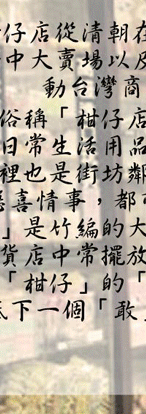 仔店從清朝在
中大賣場以及
動台灣商
俗稱「柑仔店
日常生活用品
裡也是街坊鄰
喜情事，都
」是竹編的大
貨店中常擺放
「柑仔」的「
底下一個「敢」